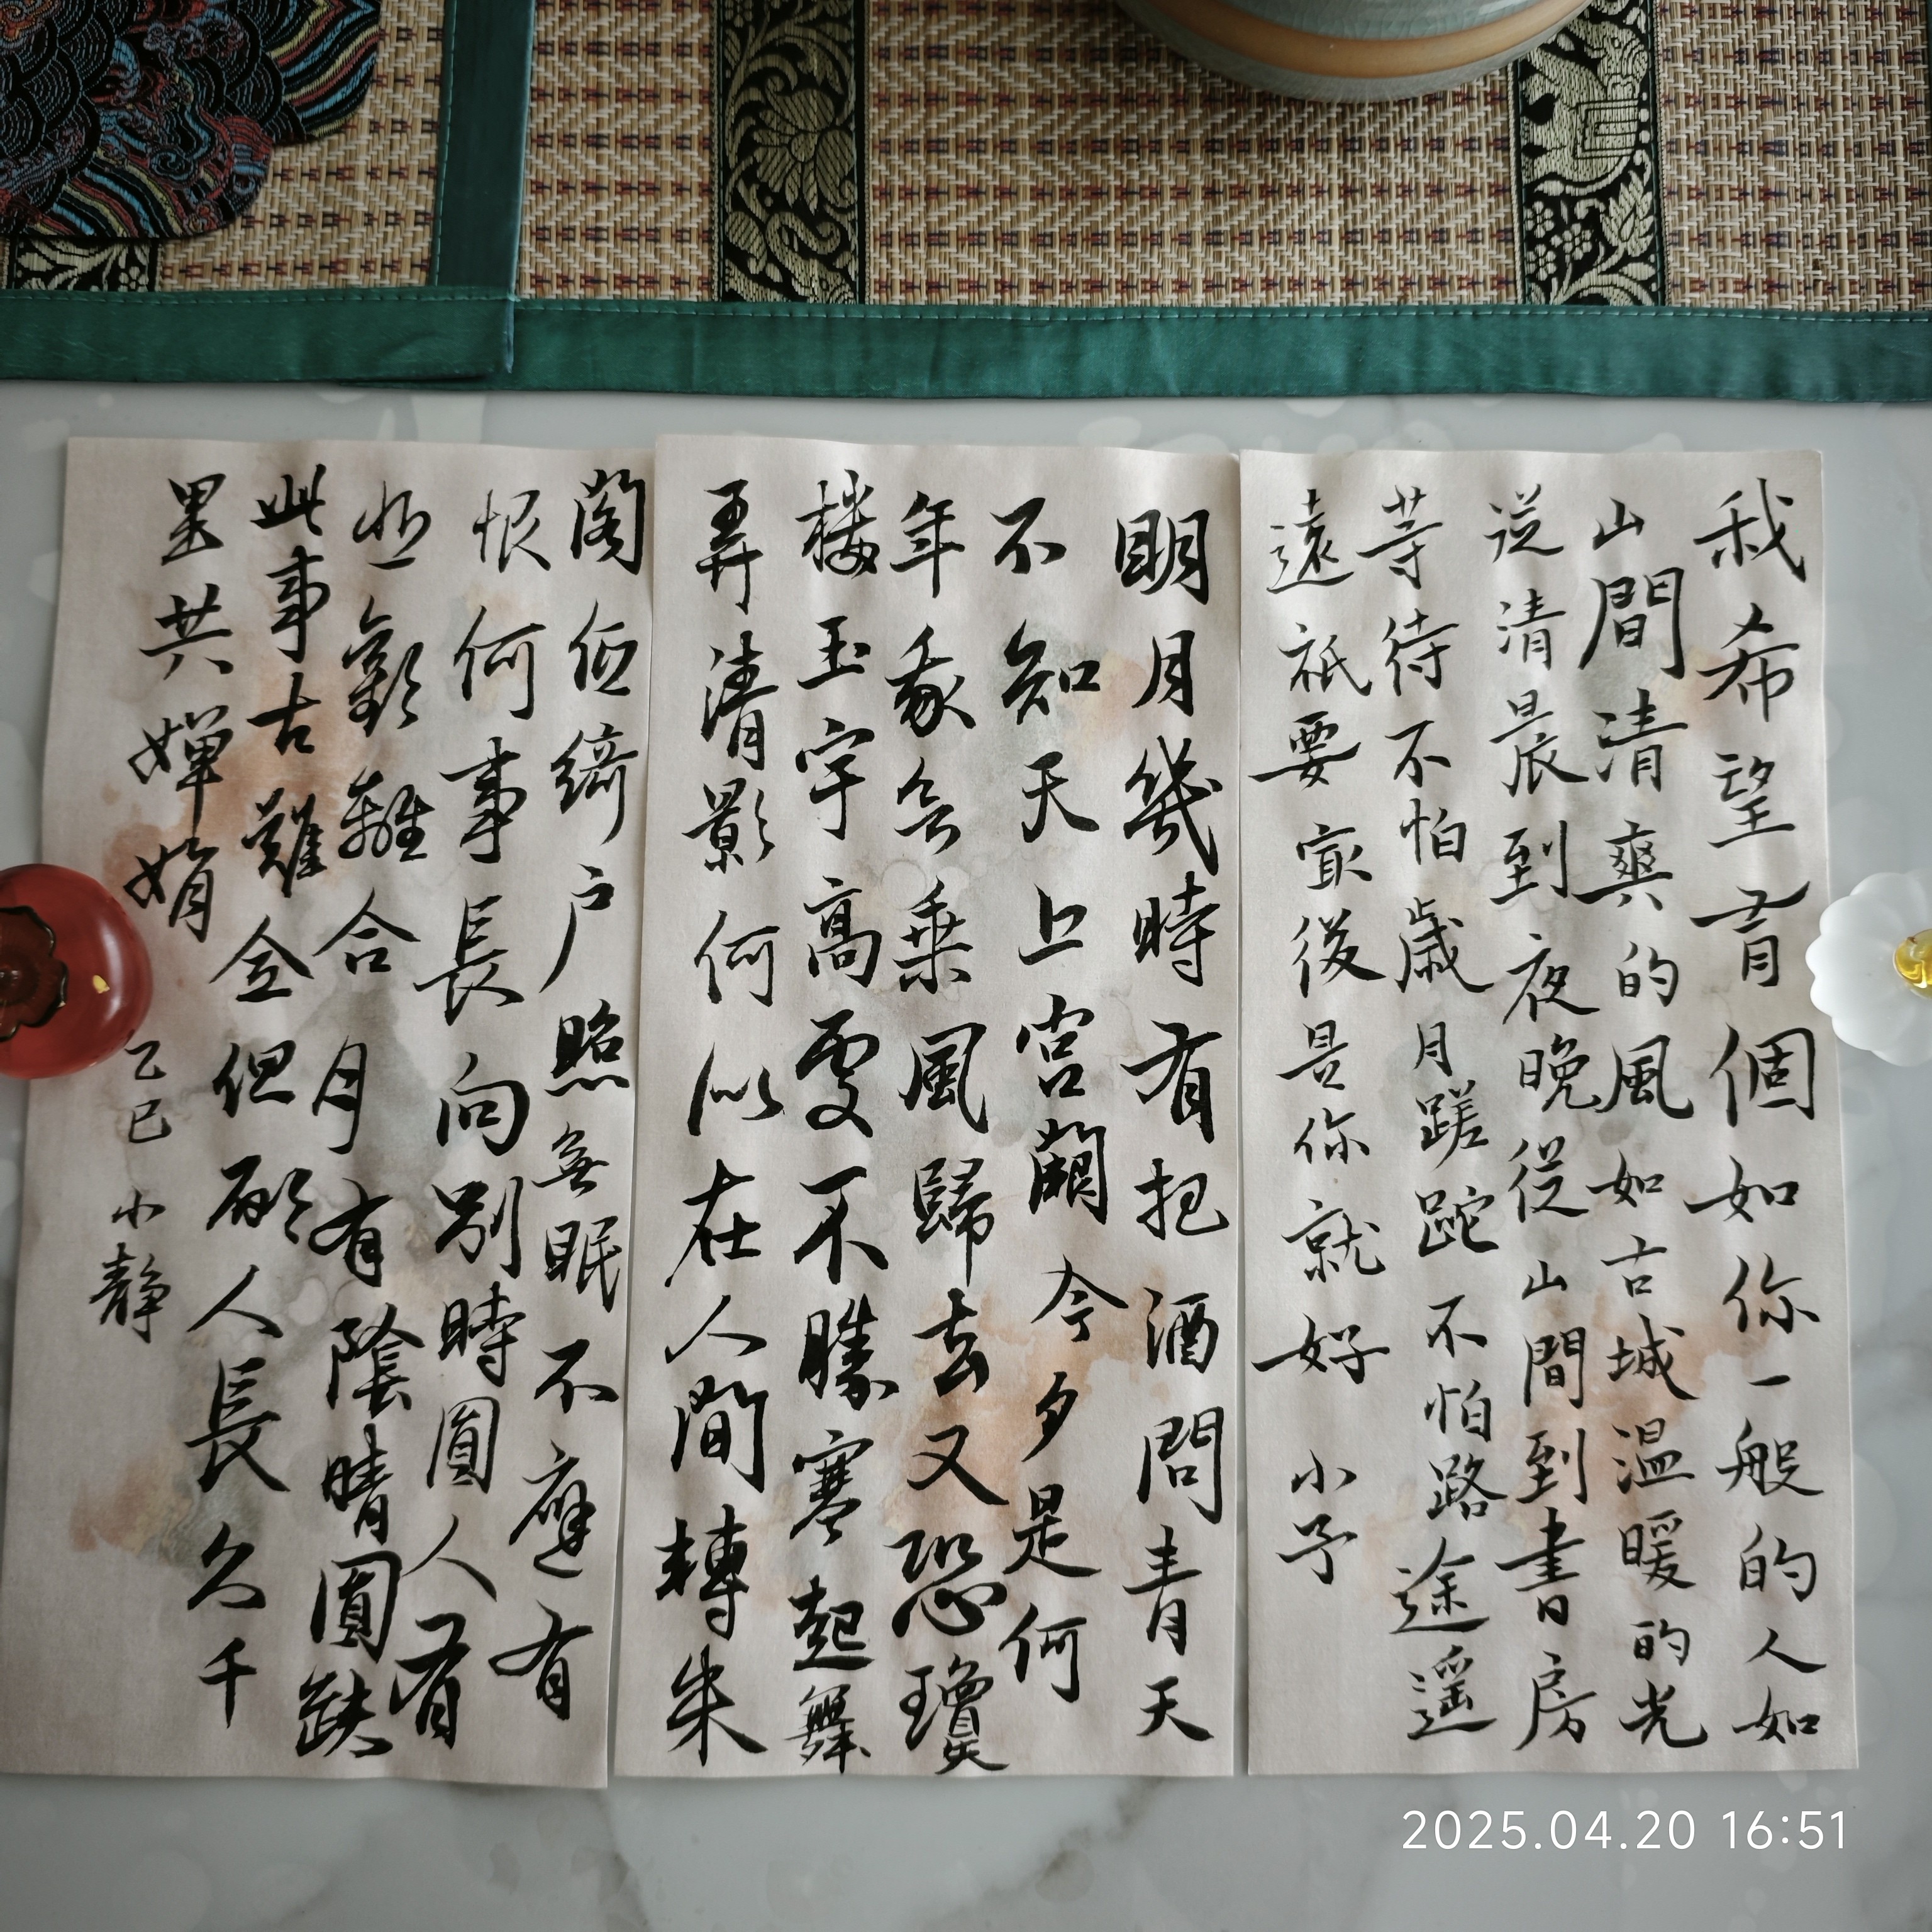 我希望有個如你一般的人如
山間清爽的風如古城温暖的光
從清晨到夜晚從山間到書房
等待不怕歲月蹉跎不怕路途遥
遠祇要最後是你就好 小予
明月幾時有把酒問青天
不知天上宮闕今夕是何
年我欲乘風歸去又恐瓊
樓玉宇高處不勝寒起舞
弄清影何似在人間轉朱
閣低綺户照無眠不應有
恨何事長向别時圓人有
悲歡離合月有陰晴圓缺
此事古難全但願人長久千
里共嬋娟 乙巳 小靜
2025.04.20 16:51